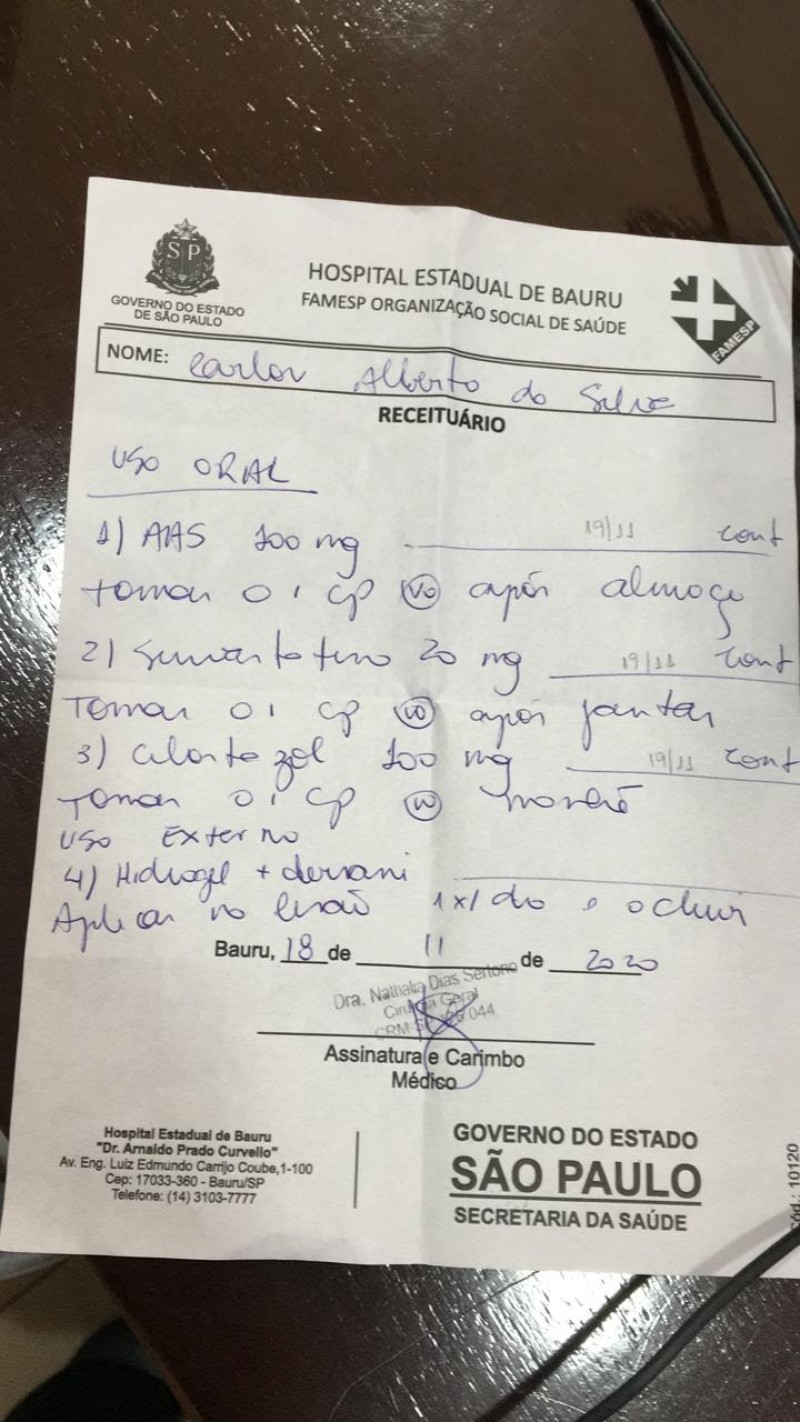 SP
GOVERNO DO ESTADO
DE SÃO PAULO
HOSPITAL ESTADUAL DE BAURU
FAMESP ORGANIZAÇÃO SOCIAL DE SAÚDE
FAMESP
NOME: Carlos Alberto da Silva
RECEITUÁRIO
USO ORAL
1) AAS 100 mg 19/11 cont
tomar 01 cp VO após almoço
2) Sinvastatina 20 mg 19/11 cont
Tomar 01 cp VO após jantar
3) Cilostazol 100 mg 19/11 cont
Tomar 01 cp VO manhã
USO EXTERNO
4) Hidrogel + dersani
Aplicar na lesão 1x/dia e ocluir
Bauru, 18 de 11 de 2020
Dra. Nathalia Dias Sertorio
Cirurgia Geral
CRM-SP 044
Assinatura e Carimbo
Médico
Hospital Estadual de Bauru
"Dr. Arnaldo Prado Curvello"
Av. Eng. Luiz Edmundo Carrijo Coube,1-100
Cep: 17033-360 - Bauru/SP
Telefone: (14) 3103-7777
GOVERNO DO ESTADO
SÃO PAULO
SECRETARIA DA SAÚDE
Cód.: 10120